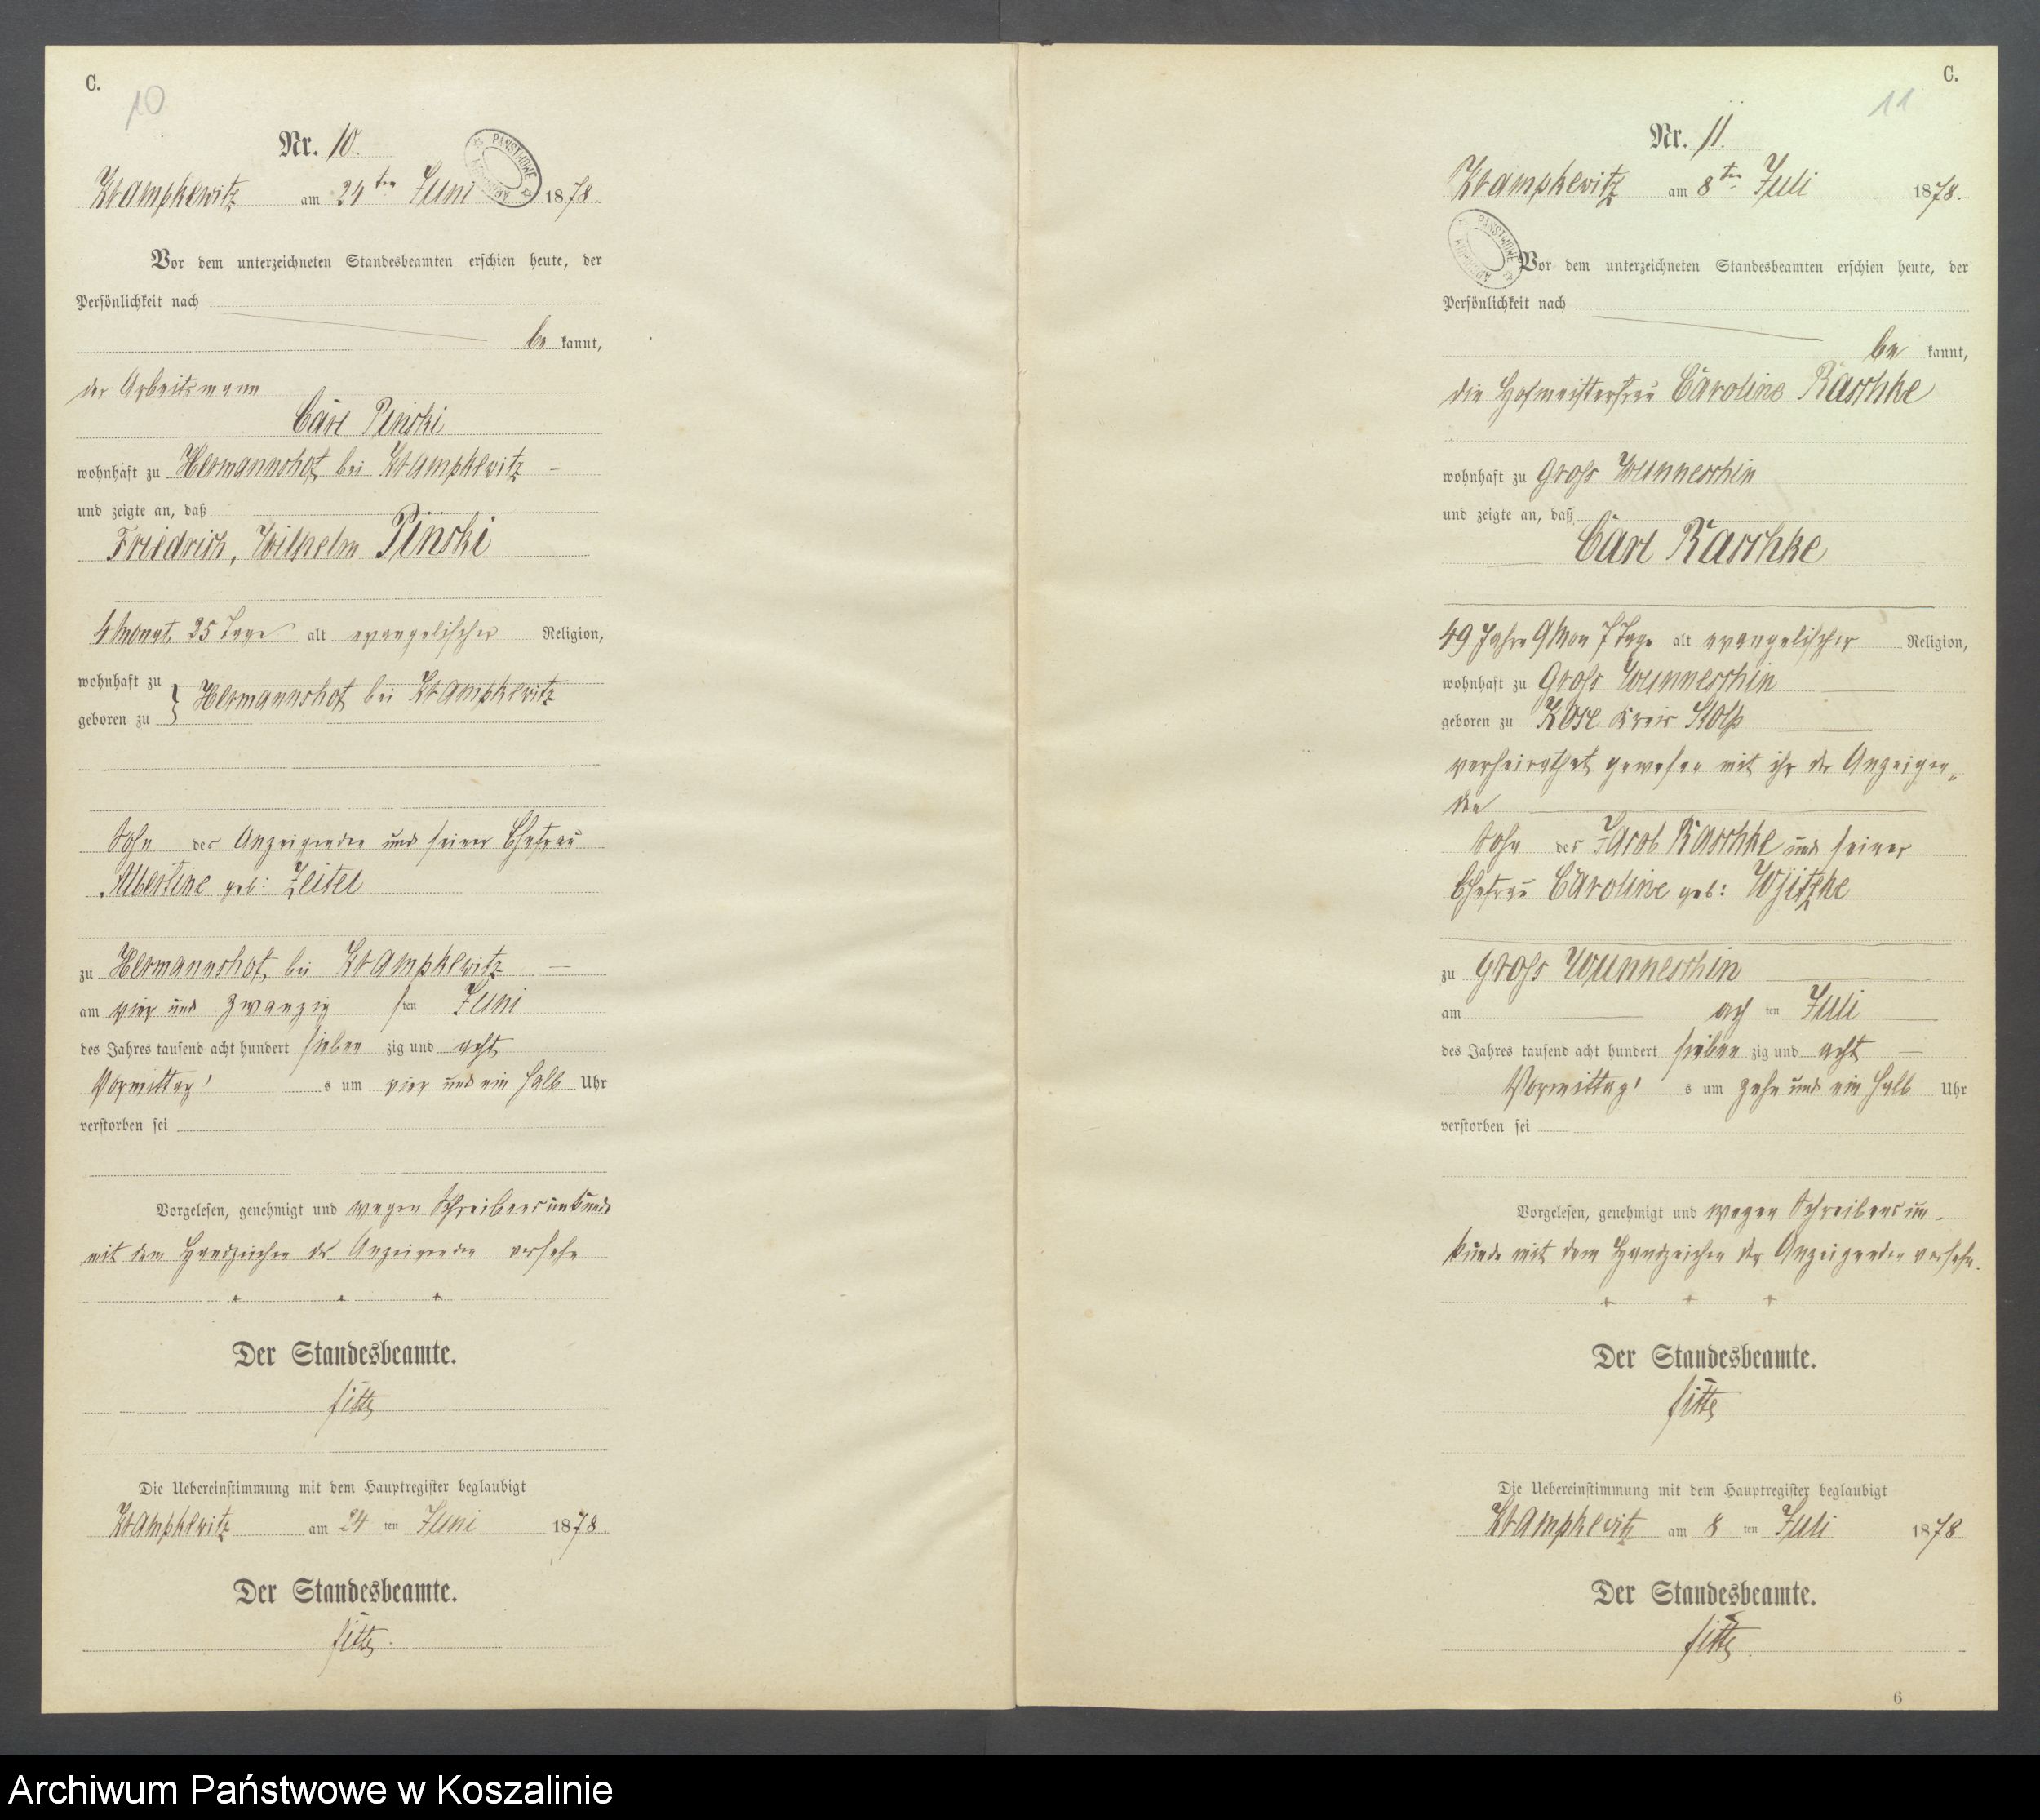 C.
10
Nr. 10.
Krampkewitz am 24ten Juni 1878.
PAŃSTWOWE
Vor dem unterzeichneten Standesbeamten erschien heute, der
Persönlichkeit nach
be kannt,
der Arbeitsmann
Carl Pinski
wohnhaft zu Hermannshof bei Krampkewitz
und zeigte an, daß
Friedrich, Wilhelm Pinski
4 Monat 25 Tage alt evangelischer Religion,
wohnhaft zu
geboren zu } Hermannshof bei Krampkewitz
Sohn des Anzeigenden und seiner Ehefrau
Albertine geb: Zeitel
zu Hermannshof bei Krampkewitz
am vier und zwanzig sten Juni
des Jahres tausend acht hundert sieben zig und acht
Vormittag' s um vier und ein halb Uhr
verstorben sei
Vorgelesen, genehmigt und wegen Schreibensunkunde
mit dem Handzeichen des Anzeigenden versehn
+ + +
Der Standesbeamte.
Die Uebereinstimmung mit dem Hauptregister beglaubigt
Krampkewitz am 24 ten Juni 1878.
Der Standesbeamte.
C.
11
Nr. 11.
Krampkewitz am 8ten Juli 1878.
PAŃSTWOWE
Vor dem unterzeichneten Standesbeamten erschien heute, der
Persönlichkeit nach
be kannt,
die Hofmeisterfrau Caroline Raschke
wohnhaft zu Groß Wunneschin
und zeigte an, daß
Carl Raschke
49 Jahre 9 Mon 7 Tage alt evangelischer Religion,
wohnhaft zu Groß Wunneschin
geboren zu Kose Kreis Stolp
verheirathet gewesen mit ihr der Anzeigen„
den
Sohn des Jacob Raschke und seiner
Ehefrau Caroline geb: Witzke
zu Groß Wunneschin
am ach ten Juli
des Jahres tausend acht hundert sieben zig und acht
Vormittag' s um zehn und ein halb Uhr
verstorben sei
Vorgelesen, genehmigt und wegen Schreibensun-
kunde mit dem Handzeichen der Anzeigenden versehn.
+ + +
Der Standesbeamte.
Die Uebereinstimmung mit dem Hauptregister beglaubigt
Krampkewitz am 8 ten Juli 1878
Der Standesbeamte.
6
Archiwum Państwowe w Koszalinie